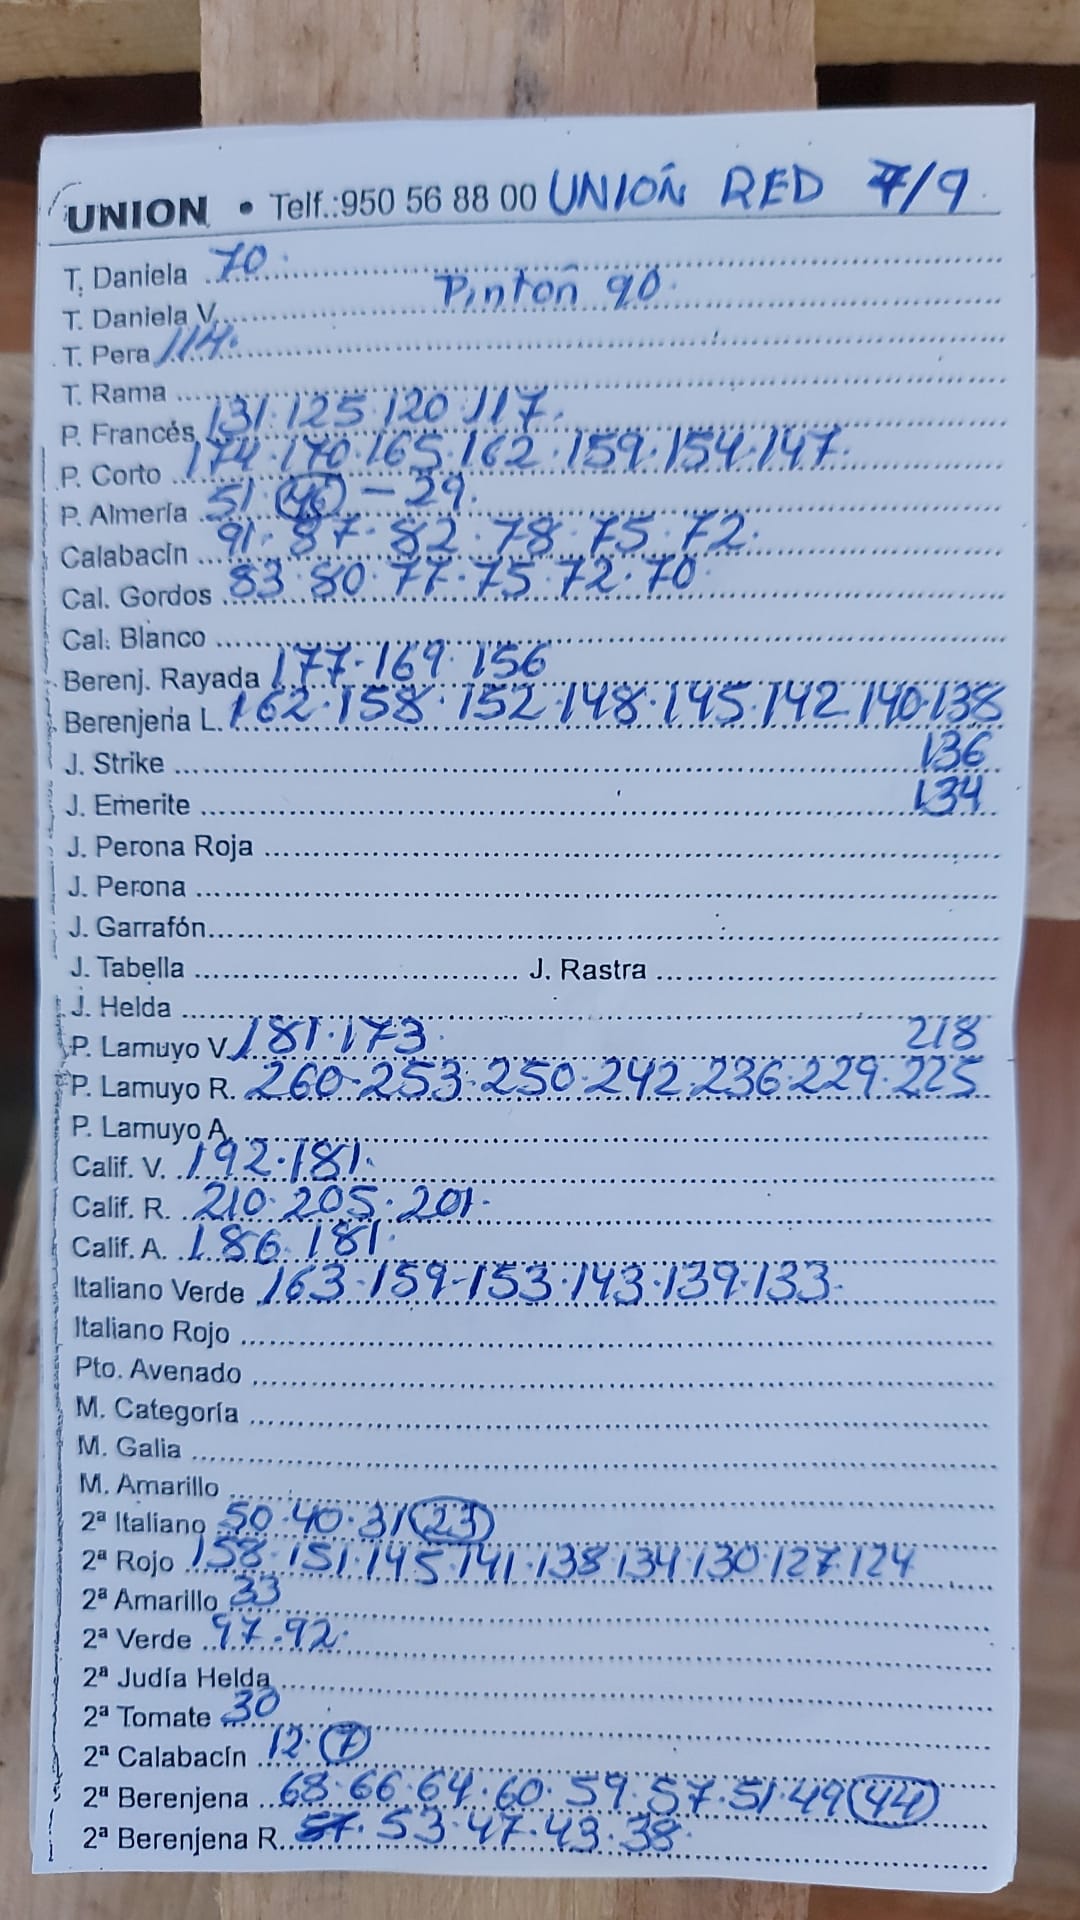 UNION • Telf.:950 56 88 00 UNIOÑ RED 7/9
T. Daniela 70.
Pintoñ 90.
T. Daniela V.
T. Pera 114.
T. Rama
P. Francés 131.125.120.117.
P. Corto 174.170.165.162.159.154.147.
P. Almería 51.46-29.
Calabacín 91.87.82.78.75.72.
Cal. Gordos 83.80.77.75.72.70.
Cal. Blanco
Berenj. Rayada 177.169.156
Berenjena L. 162.158.152.148.145.142.140.138
J. Strike 136
J. Emerite 134
J. Perona Roja
J. Perona
J. Garrafón
J. Tabella J. Rastra
J. Helda
P. Lamuyo V. 181.173. 218
P. Lamuyo R. 260-253.250.242.236.229.225
P. Lamuyo A.
Calif. V. 192.181.
Calif. R. 210.205.201.
Calif. A. 186.181.
Italiano Verde 163.159-153.143.139.133.
Italiano Rojo
Pto. Avenado
M. Categoría
M. Galia
M. Amarillo
2ª Italiano 50.40.31 23
2ª Rojo 158.151.145.141.138.134.130.127.124
2ª Amarillo 33
2ª Verde 97.92.
2ª Judía Helda
2ª Tomate 30
2ª Calabacín 12.7
2ª Berenjena 68.66.64.60.59.57.51.49 44
2ª Berenjena R. 57.53.47.43.38.